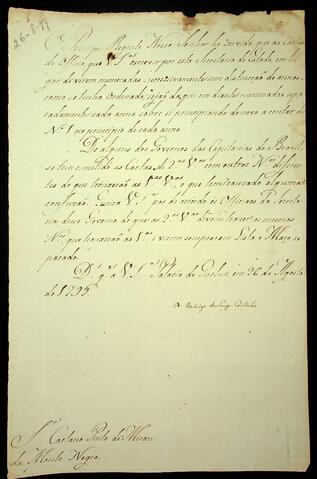 26-8-99
O Principe Regente Nosso Senhor he servido que as Cartas
de Officio que V. S.ª escrever por esta Secretaria de Estado, em lu-
gar de virem numeradas successivamente sem distincção de annos,
como se tinha ordenado, sejaõ daqui em diante numeradas sepa-
radamente cada anno sobre si principiando de novo a contar do
N.º 1 no principio de cada anno.
De alguns dos Governos das Capitanias do Brazil
se tem remetido as Cartas de 2.as Vias com outros N.os differen-
tes do que trouxeraõ as 1.as Vias, o que tem cauzado alguma
confuzaõ. Queira V. S.ª pôr de acordo os Officiaes da Secreta-
ria desse Governo de que as 2.as Vias devem trazer os mesmos
N.os que trouxeraõ as 1.as, e virem sempre em Lata, e Maço se-
parado.
D.s g.e a V. S.ª Palacio de Queluz em 26 de Agosto
de 1799
D. Rodrigo de Souza Coutinho
S.r Caetano Pinto de Miran
da Monte Negro.